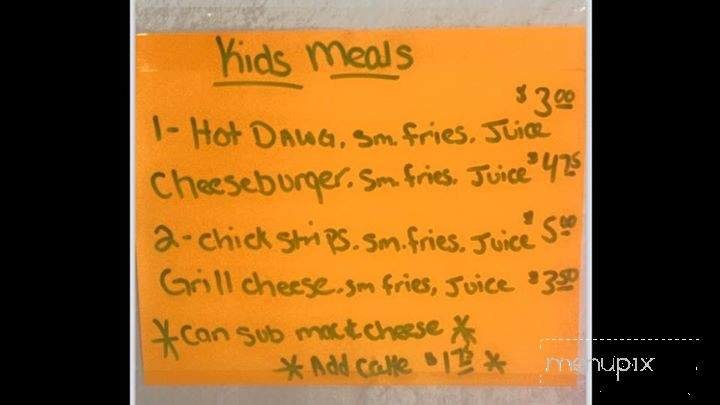 Kids Meals
$3.00
1- Hot DAWG. sm. fries. Juice
Cheeseburger. Sm. fries. Juice $4.75
2- chick strips. sm. fries. Juice $5.00
Grill cheese. sm fries, Juice $3.50
*Can sub mac & cheese*
* Add $1.75 *
menupix